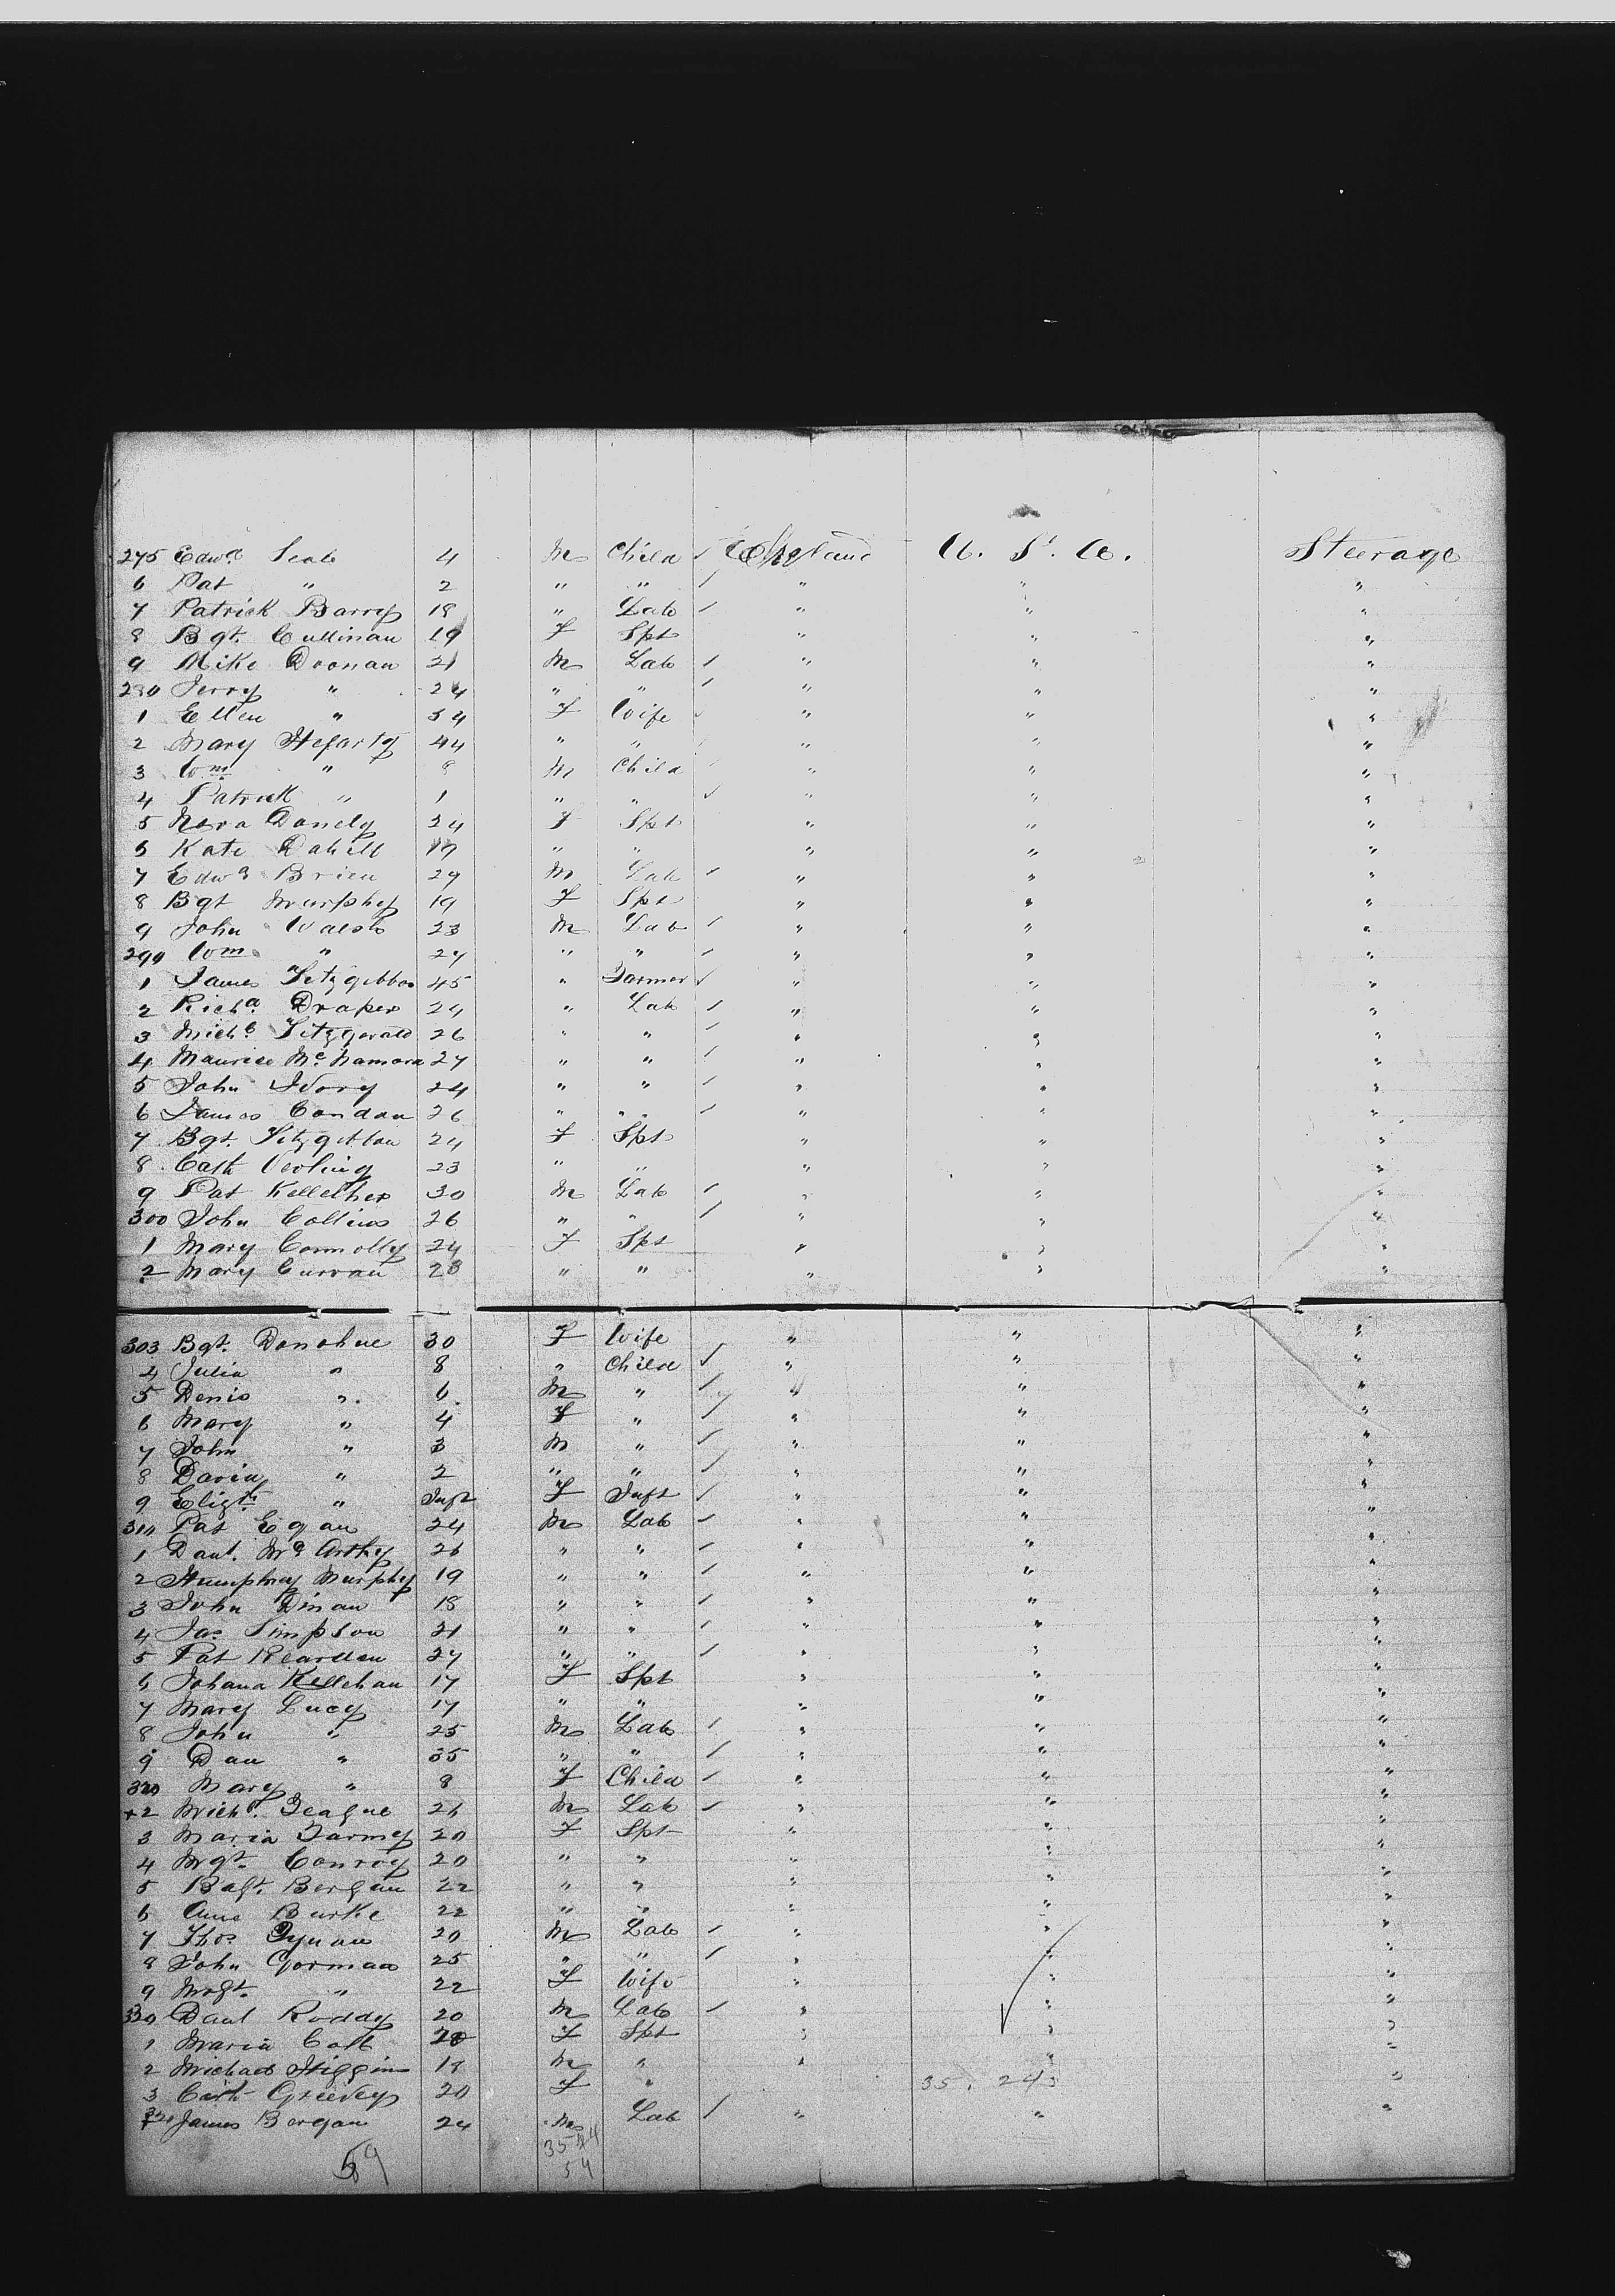 275 Edwd. Seale 4 M Child ✓ U. S. A. Steerage
6 Pat " 2 " " ✓ " " "
7 Patrick Barry 18 " Lab ✓ " " "
8 Bgt. Cullinan 19 F Spt " " "
9 Mike Doonan 21 M Lab ✓ " " "
280 Jerry " 24 " " ✓ " " "
1 Ellen " 34 F Wife ✓ " " "
2 Mary Hefarty 44 " " " " "
3 Wm. " 8 M Child " " "
4 Patrick " 1 " " ✓ " " "
5 Nora Donely 24 F Spt " " "
6 Kate Dahill 19 " " " " "
7 Edwd Brien 29 M Lab ✓ " " "
8 Bgt Murphy 19 F Spt " " "
9 John Walsh 23 M Lab ✓ " " "
290 Wm. " 27 " " ✓ " " "
1 James Fitzgibbon 45 " Farmer ✓ " " "
2 Richd. Draper 24 " Lab ✓ " " "
3 Michl. Fitzgerald 26 " " ✓ " " "
4 Maurice McNamara 27 " " ✓ " " "
5 John Ivory 24 " " ✓ " " "
6 James Condon 26 " " ✓ " " "
7 Bgt. Fitzgibbon 24 F Spt " " "
8 Cath Verling 23 " " " " "
9 Pat Kelleher 30 M Lab ✓ " " "
300 John Collins 26 " " ✓ " " "
1 Mary Connolly 24 F Spt " " "
2 Mary Curran 28 " " " " "
303 Bgt. Donohue 30 F Wife ✓ " " "
4 Julia " 8 " Child ✓ " " "
5 Denis " 6 M " ✓ " " "
6 Mary " 4 F " ✓ " " "
7 John " 3 M " ✓ " " "
8 David " 2 " " ✓ " " "
9 Elizth " Inft F Inft ✓ " " "
310 Pat Egan 24 M Lab ✓ " " "
1 Danl. McCarthy 26 " " ✓ " " "
2 Humphrey Murphy 19 " " ✓ " " "
3 John Dinan 18 " " ✓ " " "
4 Jas Simpson 21 " " ✓ " " "
5 Pat Rearden 27 " " ✓ " " "
6 Johana Kellehan 17 F Spt " " "
7 Mary Lucy 17 " " " " "
8 John " 25 M Lab ✓ " " "
9 Dan " 35 " " ✓ " " "
320 Mary " 8 F Child ✓ " " "
+2 Michl. Teague 26 M Lab ✓ " " "
3 Maria 20 F Spt " " "
4 Mgt. Conroy 20 " " " " "
5 Bergan 22 " " " " "
6 Anne Burke 22 " " " " "
7 Thos. 20 M Lab ✓ " " "
8 John Gorman 25 " " ✓ " " "
9 Mgt. " 22 F Wife " " "
330 Danl Roddy 20 M Lab ✓ " " "
1 Maria Colt 20 F Spt " " "
2 Michael Higgins 18 M " " " "
3 Cath 20 F " 35. 24 "
James Bergan 24 M Lab ✓ " " "
59 35 44
54